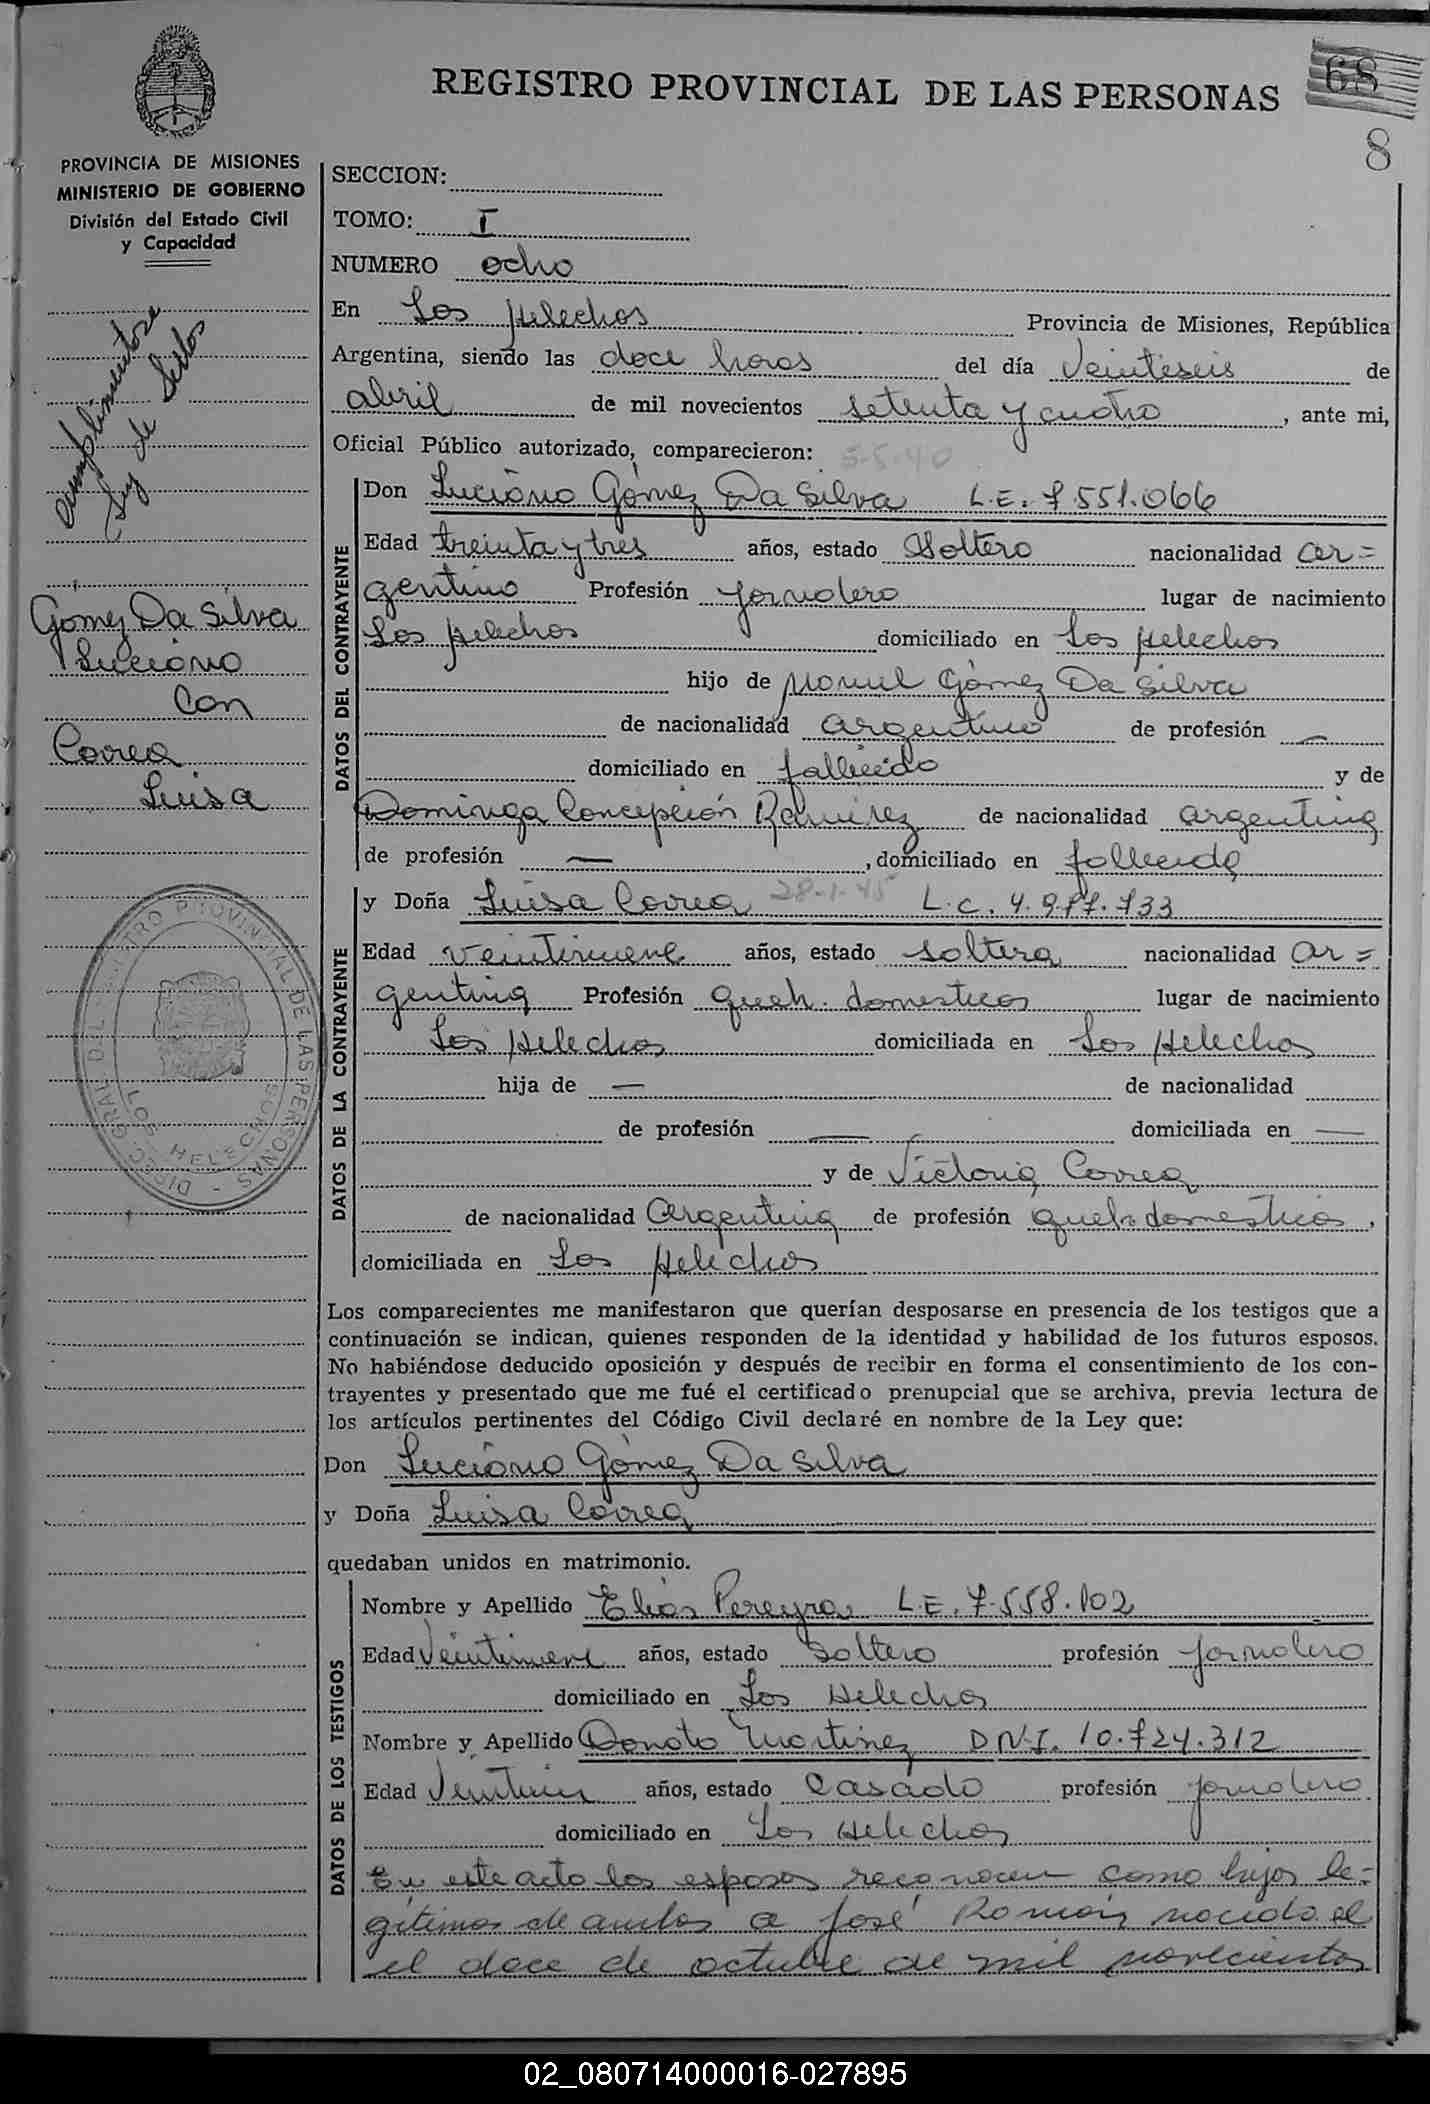 REGISTRO PROVINCIAL DE LAS PERSONAS
68
8
PROVINCIA DE MISIONES
MINISTERIO DE GOBIERNO
División del Estado Civil
y Capacidad
SECCION:
TOMO: I
NUMERO ocho
En Los Helechos Provincia de Misiones, República
Argentina, siendo las doce horas del día Veintiseis de
abril de mil novecientos setenta y cuatro, ante mi,
Oficial Público autorizado, comparecieron: 5-5-40
cumplimentose
Ley de Sellos
Gómez Da Silva
Luciano
Con
Correa
Luisa
DIREC. GRAL. DEL REGISTRO PROVINCIAL DE LAS PERSONAS -
LOS HELECHOS
DATOS DEL CONTRAYENTE
Don Luciano Gómez Da Silva L.E. 7.551.066
Edad treinta y tres años, estado Soltero nacionalidad ar=
gentino Profesión jornalero lugar de nacimiento
Los Helechos domiciliado en Los Helechos
hijo de Manuel Gómez Da Silva
de nacionalidad argentino de profesión —
domiciliado en fallecido y de
Dominga Concepción Ramirez de nacionalidad argentina
de profesión —, domiciliado en fallecida
DATOS DE LA CONTRAYENTE
y Doña Luisa Correa 28-1-45 L.C. 4.977.733
Edad veintinueve años, estado soltera nacionalidad ar=
gentina Profesión queh. domesticos lugar de nacimiento
Los Helechos domiciliada en Los Helechos
hija de — de nacionalidad
de profesión — domiciliada en —
y de Victoria Correa
de nacionalidad Argentina de profesión queh. domesticos,
domiciliada en Los Helechos
Los comparecientes me manifestaron que querían desposarse en presencia de los testigos que a
continuación se indican, quienes responden de la identidad y habilidad de los futuros esposos.
No habiéndose deducido oposición y después de recibir en forma el consentimiento de los con-
trayentes y presentado que me fué el certificado prenupcial que se archiva, previa lectura de
los artículos pertinentes del Código Civil declaré en nombre de la Ley que:
Don Luciano Gómez Da Silva
y Doña Luisa Correa
quedaban unidos en matrimonio.
DATOS DE LOS TESTIGOS
Nombre y Apellido Elias Pereyra L.E. 7.558.102
Edad Veintinueve años, estado Soltero profesión jornalero
domiciliado en Los Helechos
Nombre y Apellido Donato Martinez D.N.I. 10.724.312
Edad años, estado Casado profesión jornalero
domiciliado en Los Helechos
En este acto los esposos reconocen como hijos le-
gitimos de ambos a José Román nacido el
el doce de octubre de mil novecientos
02_080714000016-027895